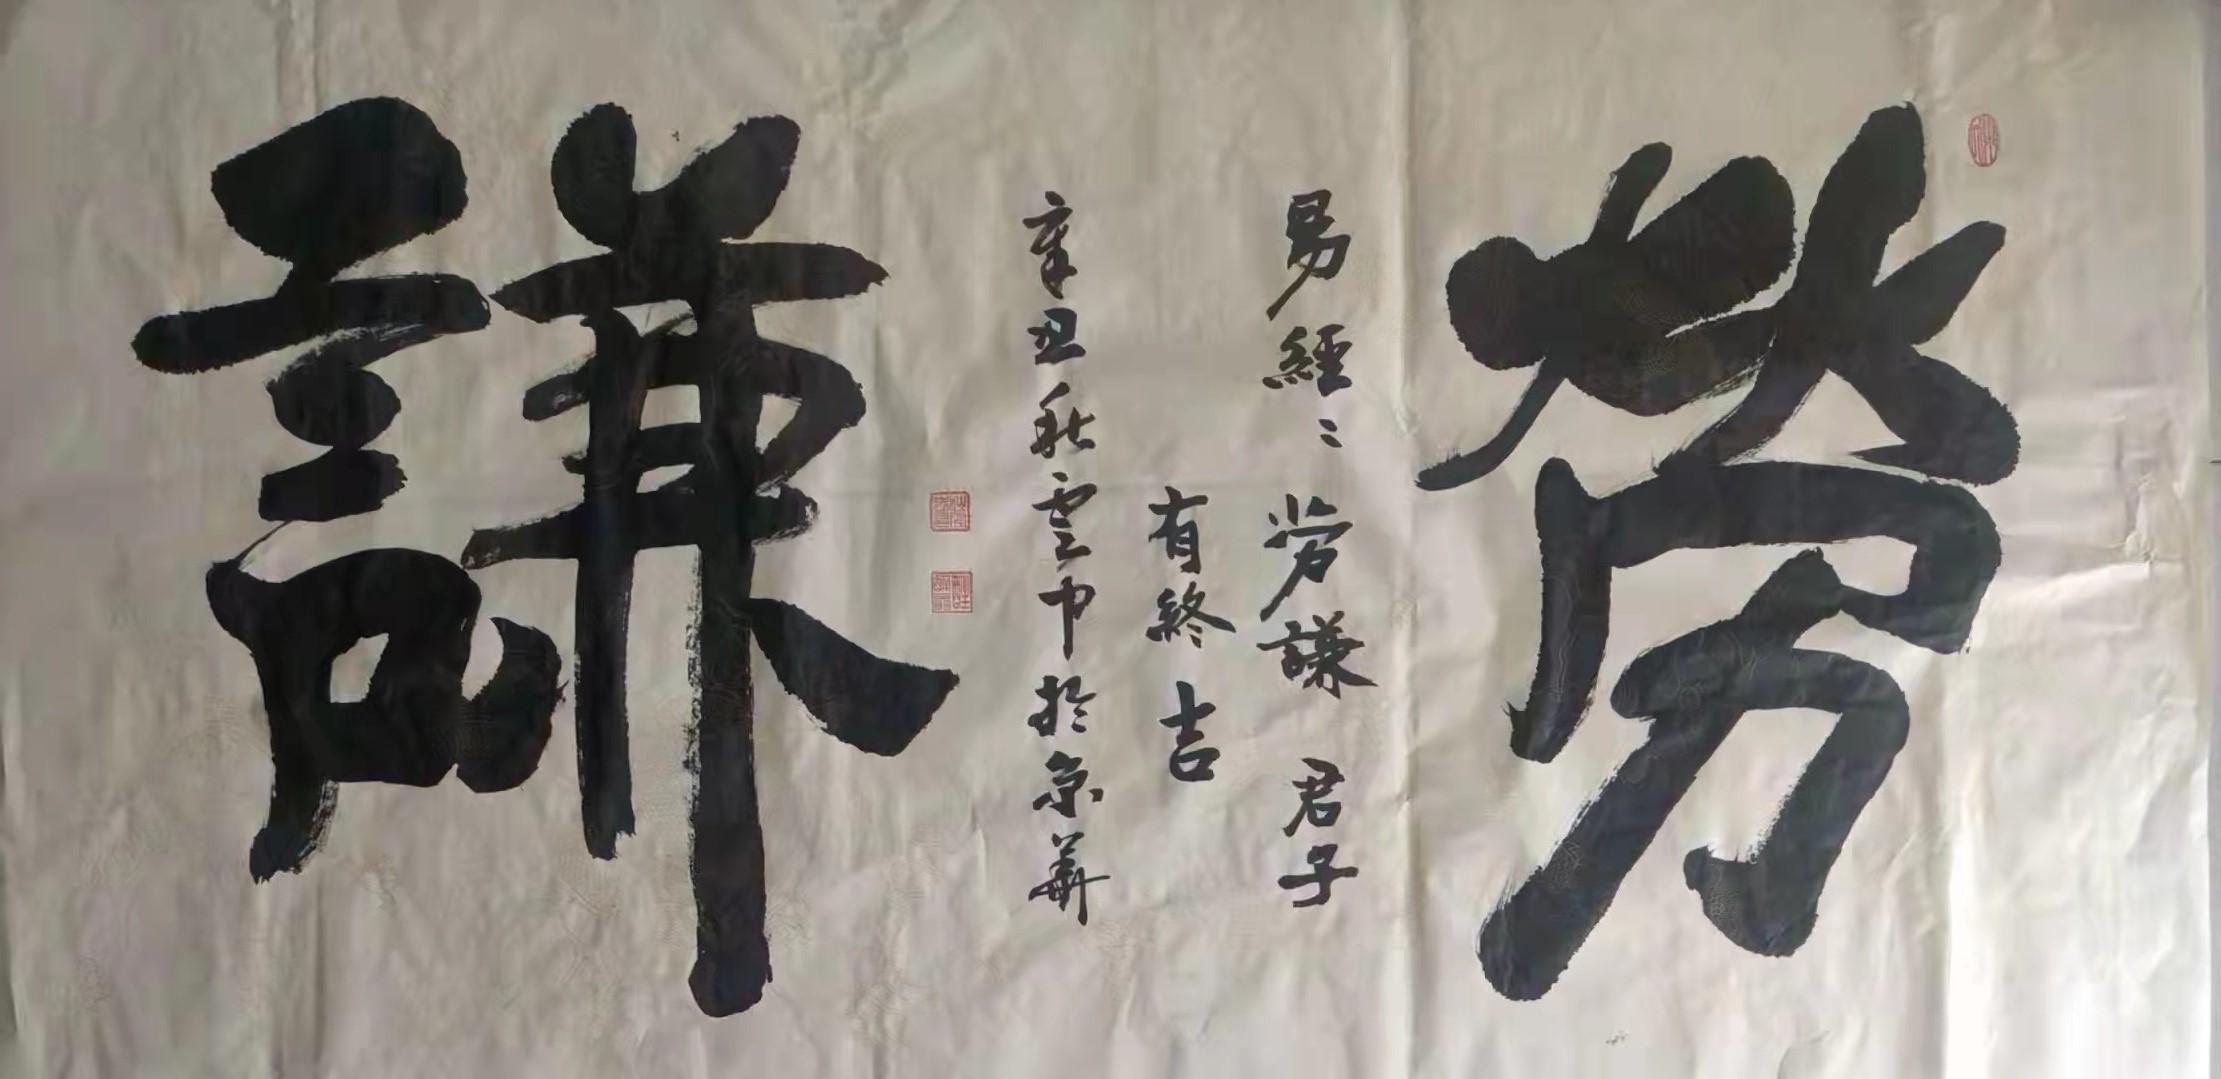 勞
易經：勞謙君子
有終吉
辛丑秋雲中於京華
謙